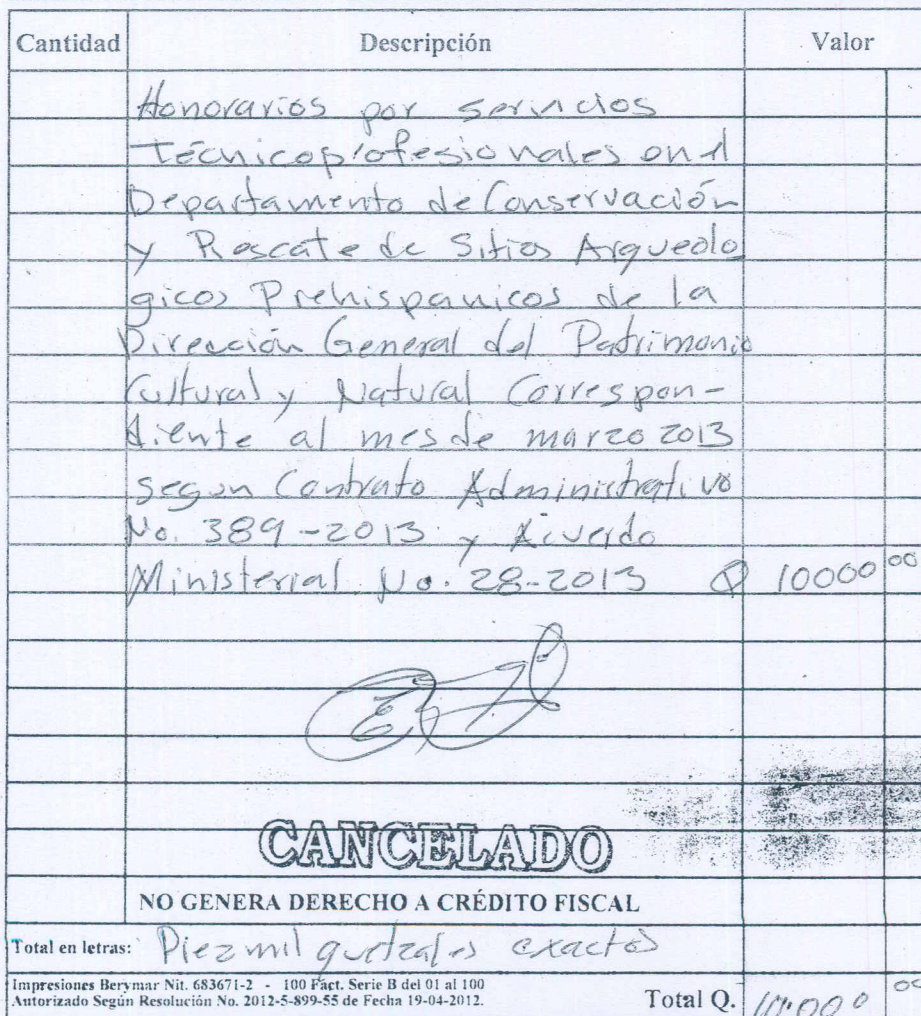 Cantidad Descripción Valor
Honorarios por servicios
Técnicoprofesionales en el
Departamento de Conservación
y Rescate de Sitios Arqueolo
gicos Prehispanicos de la
Dirección General del Patrimonio
Cultural y Natural Correspon-
diente al mes de marzo 2013
segun Contrato Administrativo
No. 389-2013 y Acuerdo
Ministerial No. 28-2013 Q 10000 00
CANCELADO
NO GENERA DERECHO A CRÉDITO FISCAL
Total en letras: Diez mil quetzales exactos
Impresiones Berymar Nit. 683671-2 - 100 Fact. Serie B del 01 al 100
Autorizado Según Resolución No. 2012-5-899-55 de Fecha 19-04-2012.
Total Q. 10,000 00